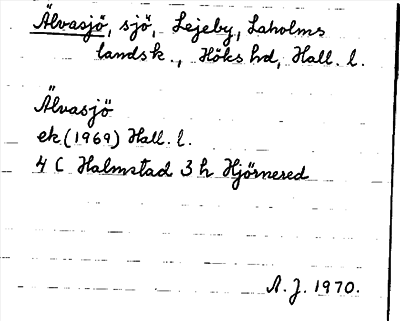 Älvasjö, sjö, Lejeby, Laholms
landsk., Höks hd, Hall. l.
Älvasjö
ek (1969) Hall. l.
4 C Halmstad 3 h Hjörnered
A. J. 1970.